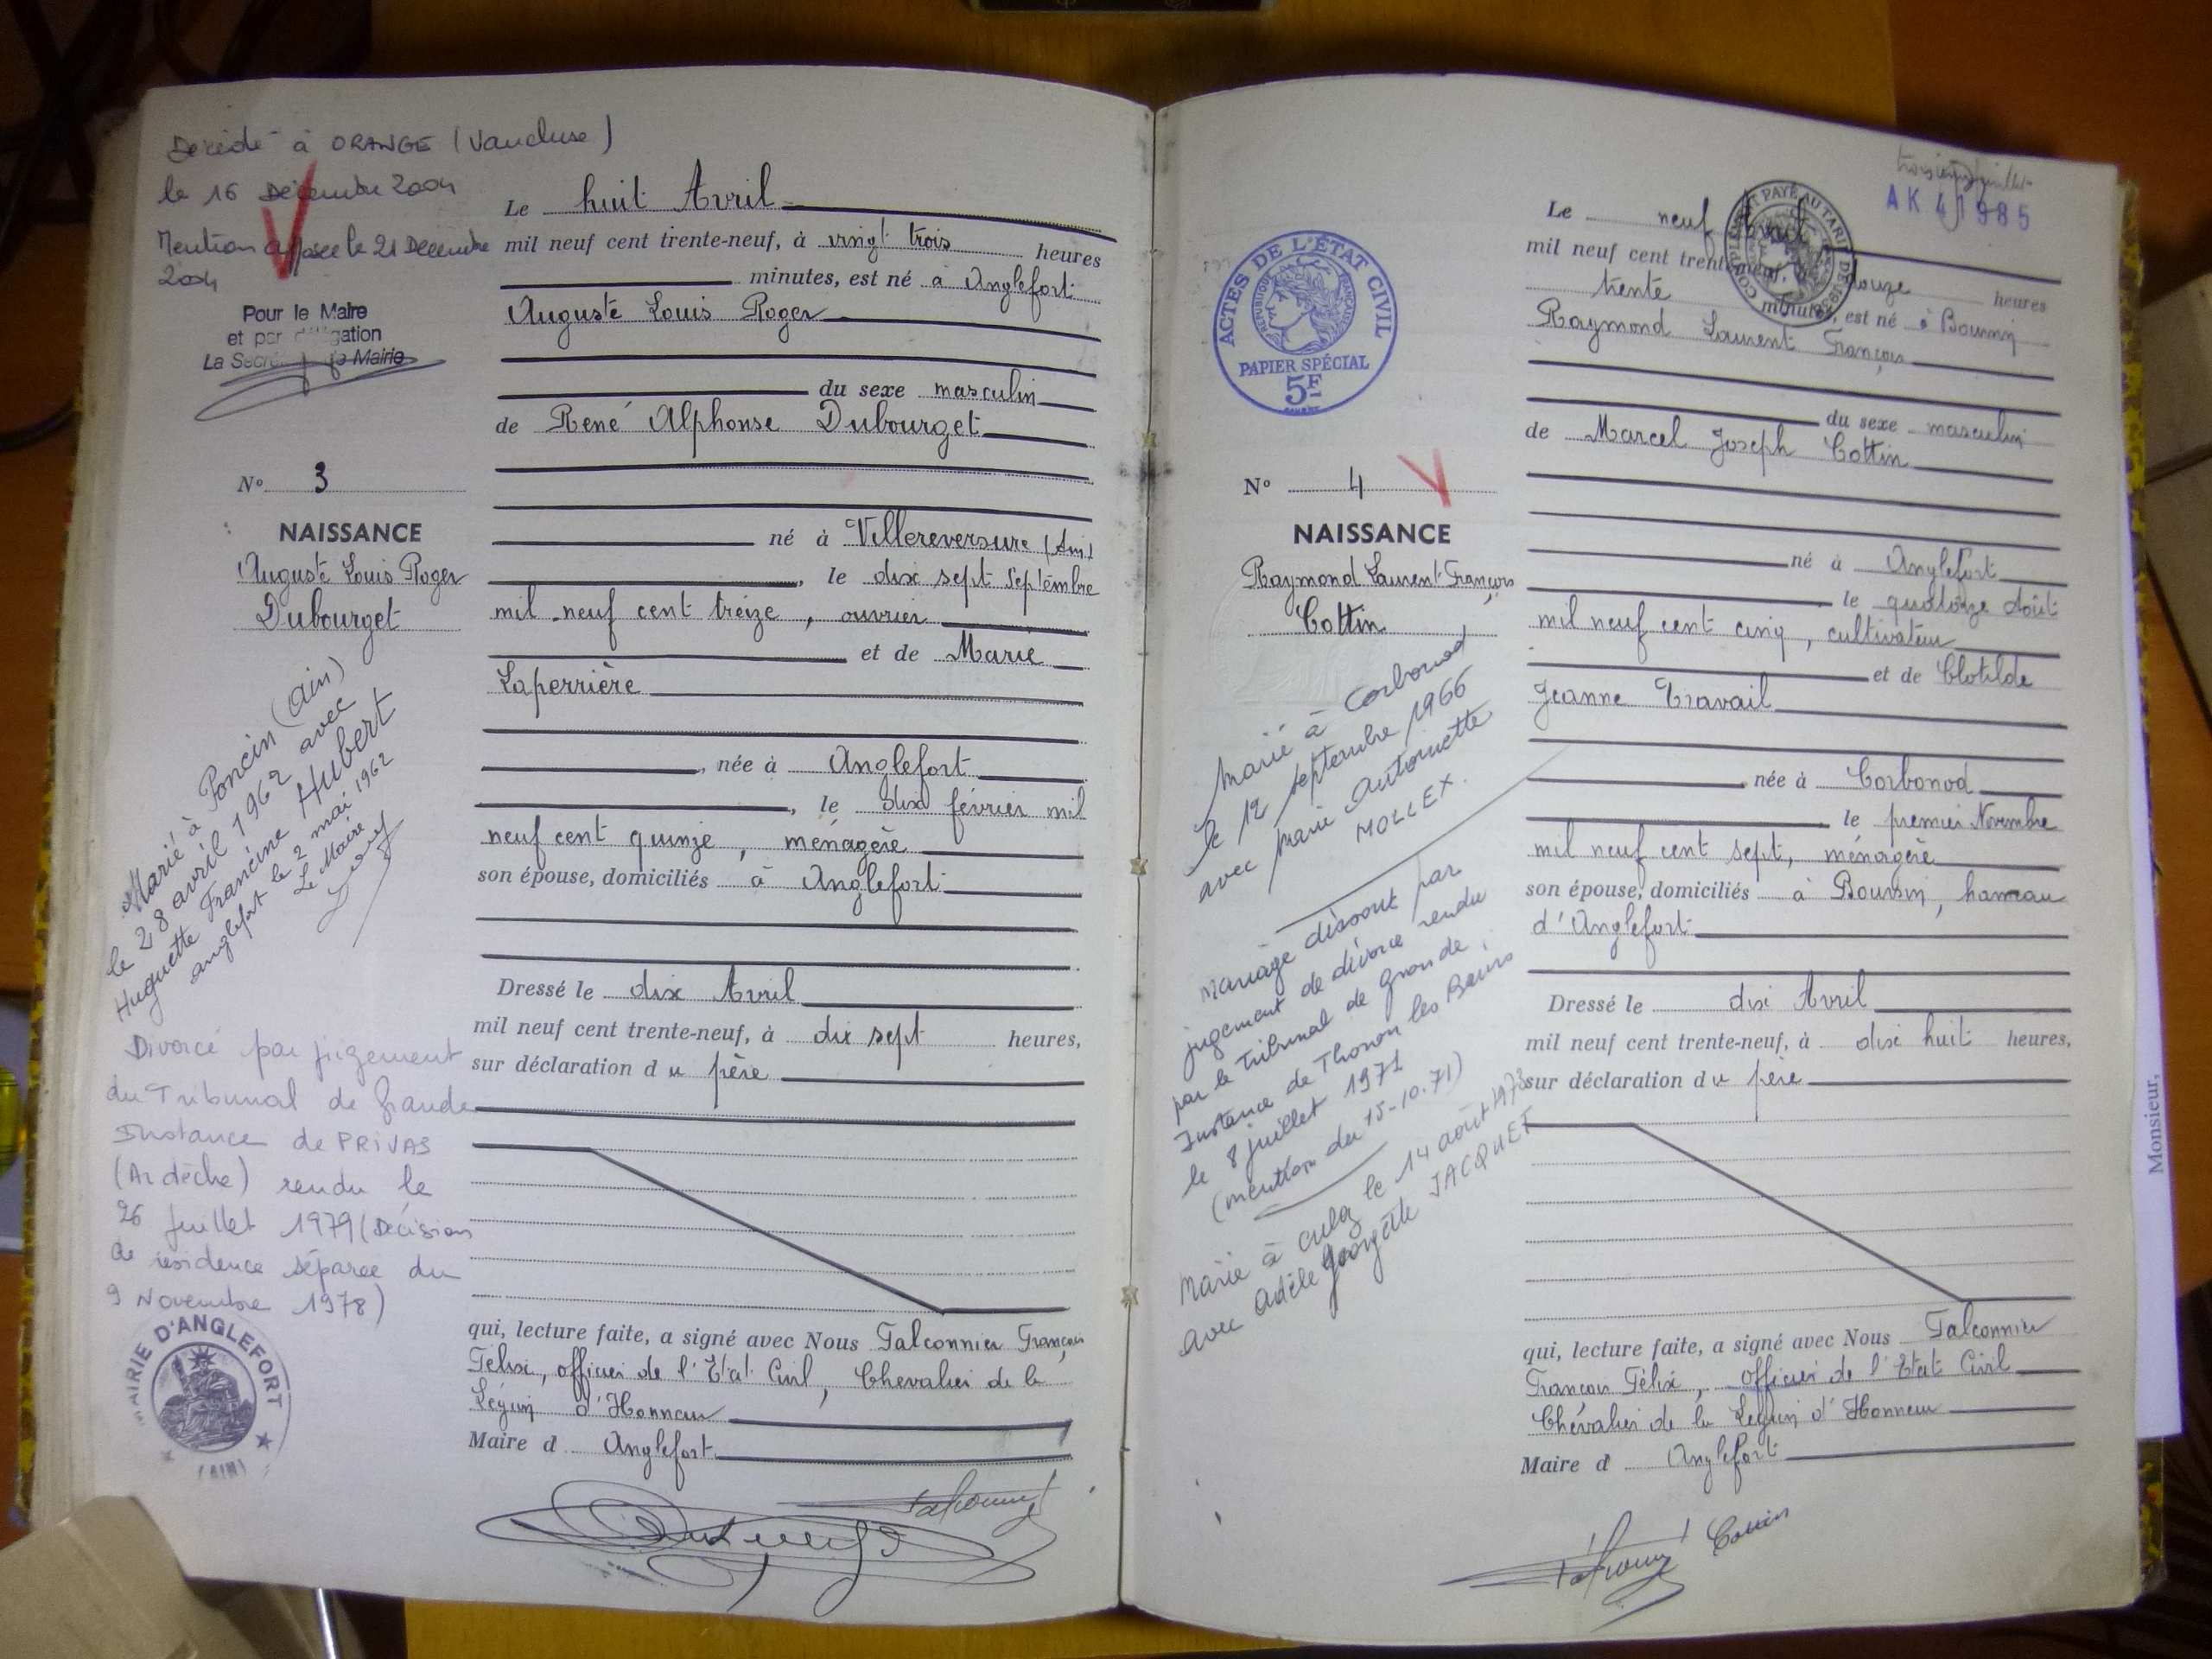 Décédé à ORANGE (Vaucluse)
le 16 Décembre 2004
Mention apposée le 21 Décembre
2004
Pour le Maire
et par délégation
La Secrétaire de Mairie
N° 3
NAISSANCE
Auguste Louis Roger
Dubourget
Marié à Poncin (Ain)
le 28 avril 1962 avec
Huguette Francine Hubert
Anglefort le 2 mai 1962
Le Maire
Divorcé par jugement
du Tribunal de Grande
Instance de PRIVAS
(Ardèche) rendu le
26 juillet 1979 (Décision
de résidence séparée du
9 Novembre 1978)
MAIRIE D'ANGLEFORT
(AIN)
Le huit Avril
mil neuf cent trente-neuf, à vingt trois heures
minutes, est né à Anglefort
Auguste Louis Roger
du sexe masculin
de René Alphonse Dubourget
né à Villereversure (Ain)
, le dix sept Septembre
mil neuf cent treize, ouvrier
et de Marie
Laperrière
, née à Anglefort
, le dix février mil
neuf cent quinze, ménagère
son épouse, domiciliés à Anglefort
Dressé le dix Avril
mil neuf cent trente-neuf, à dix sept heures,
sur déclaration du père
qui, lecture faite, a signé avec Nous Falconnier François
Félix, officier de l'Etat Civil, Chevalier de la
Légion d'Honneur
Maire d Anglefort
ACTES DE L'ÉTAT CIVIL
RÉPUBLIQUE FRANÇAISE
PAPIER SPÉCIAL
5F
N° 4
NAISSANCE
Raymond Laurent François
Cottin
Marié à Corbonod
le 12 septembre 1966
avec Marie Antoinette
MOLLEX.
Mariage dissout par
jugement de divorce rendu
par le Tribunal de Grande
Instance de Thonon les Bains
le 8 juillet 1971
(mention du 15-10.71)
Marié à Culoz le 14 août 1973
avec Adèle Georgette JACQUET
AK 41985
COMPLÉMENT PAYÉ AU TARIF DE
Le neuf
mil neuf cent trente-neuf, à douze heures
trente minutes, est né à Boursin
Raymond Laurent François
du sexe masculin
de Marcel Joseph Cottin
né à Anglefort
le quatorze Août
mil neuf cent cinq, cultivateur
et de Clotilde
Jeanne Travail
née à Corbonod
le premier Novembre
mil neuf cent sept, ménagère
son épouse, domiciliés à Boursin, hameau
d'Anglefort
Dressé le dix Avril
mil neuf cent trente-neuf, à dix huit heures,
sur déclaration du père
qui, lecture faite, a signé avec Nous Falconnier
François Félix, officier de l'Etat Civil
Chevalier de la Légion d'Honneur
Maire d Anglefort
Cottin
Monsieur,